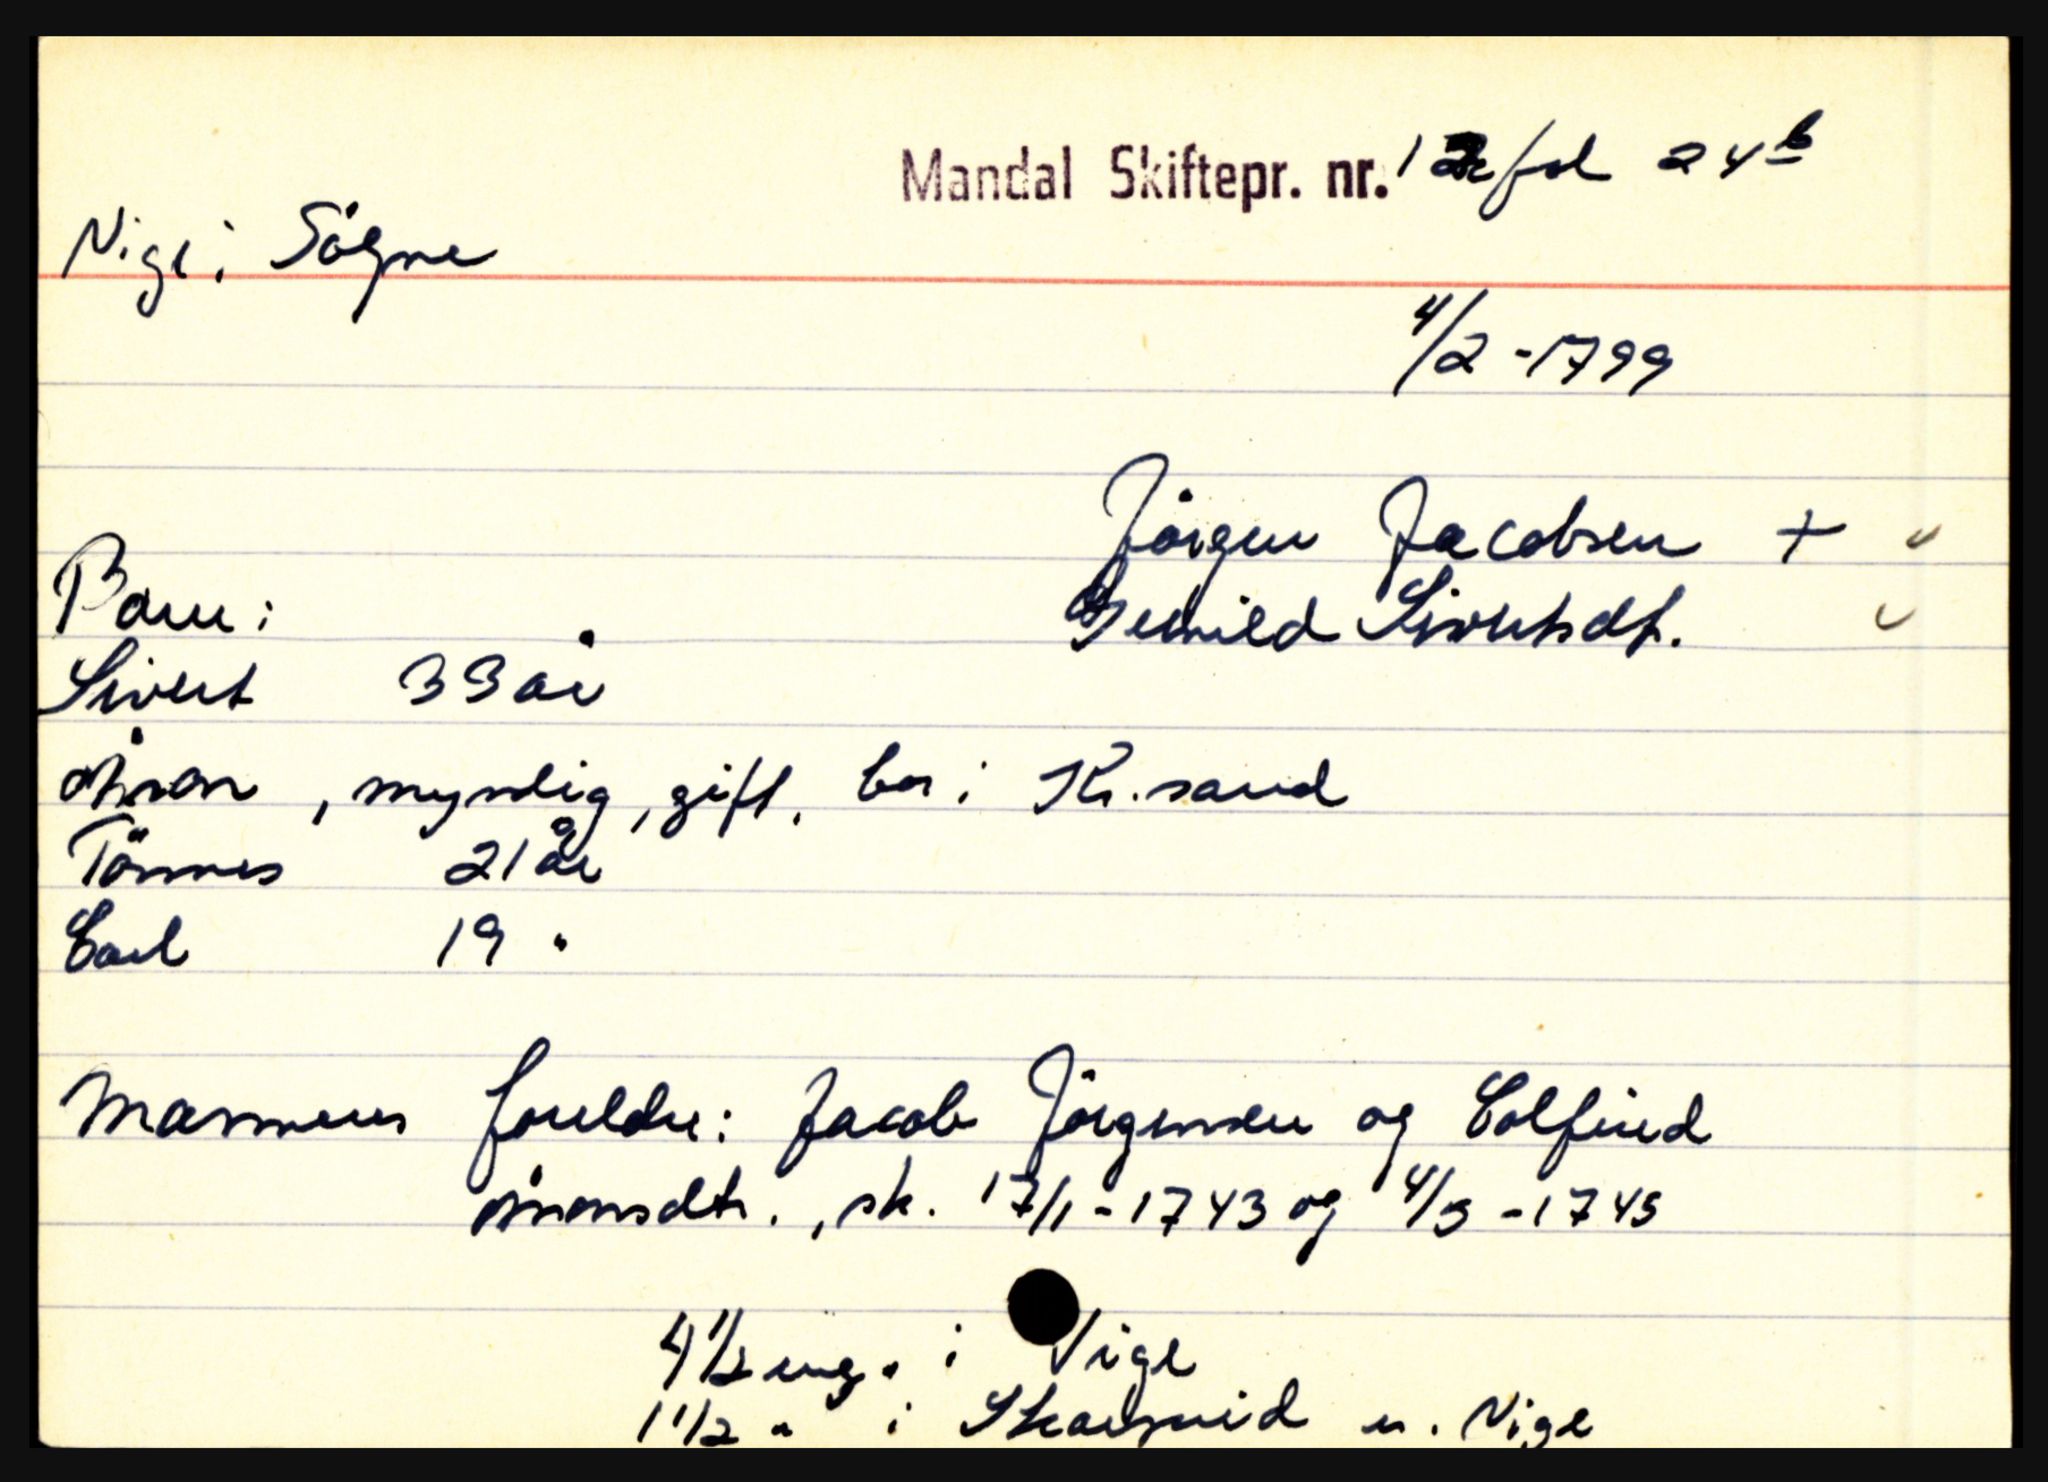 Mandal Skiftepr. nr. 12 fol 24b
Vige i Sögne
4/2-1799
Jörgen Jacobsen +
Barn: Gunild Sivertsdt.
Sivert 33 år
Ånon, myndig, gift, bor i Kr.sand
Tönnes 21 år
Carl 19 "
Mannens foreldre: Jacob Jörgensen og
Ånonsdtr., sk. 17/1-1743 og 4/5-1745
4 1/2 eng. i Vige
1 1/2 " i u. Vige